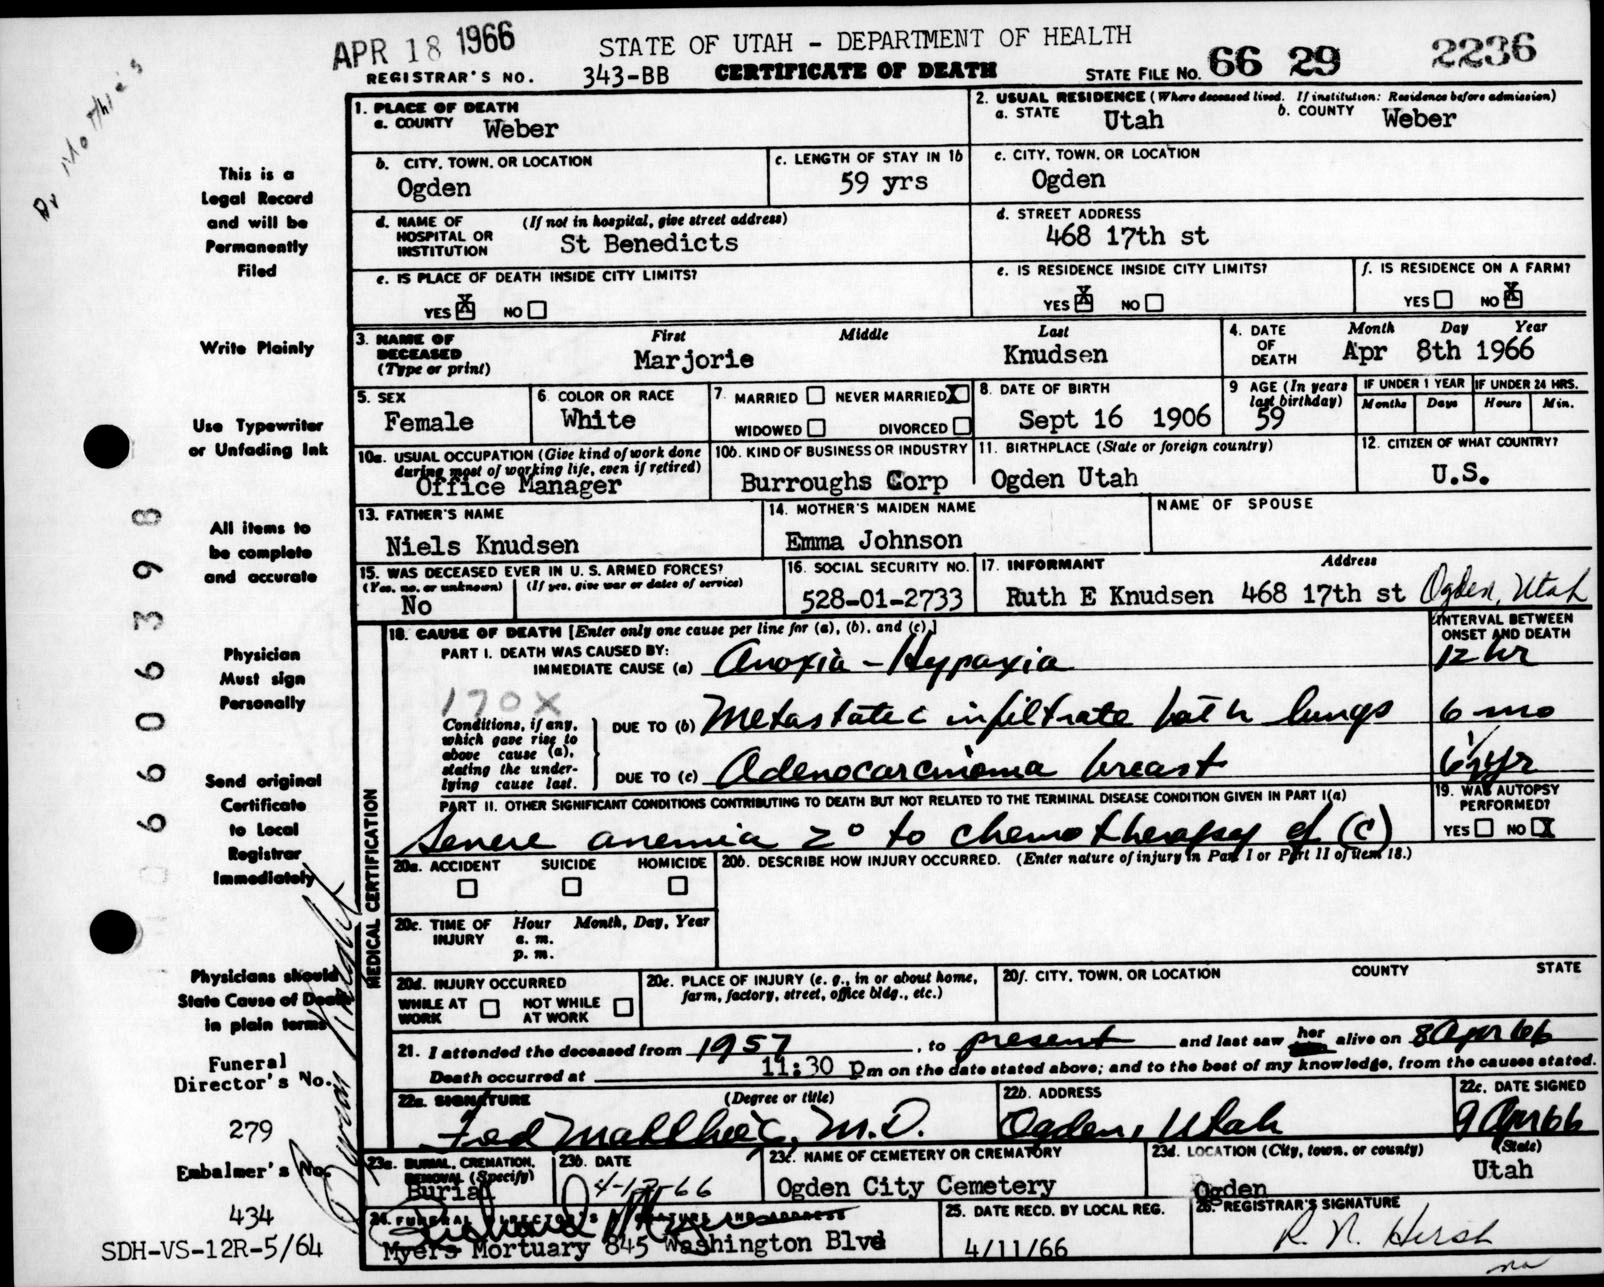 APR 18 1966
STATE OF UTAH - DEPARTMENT OF HEALTH
REGISTRAR'S NO. 343-BB CERTIFICATE OF DEATH STATE FILE NO. 66 29 2236
1. PLACE OF DEATH
a. COUNTY Weber
2. USUAL RESIDENCE (Where deceased lived. If institution: Residence before admission)
a. STATE Utah b. COUNTY Weber
b. CITY, TOWN, OR LOCATION
Ogden
c. LENGTH OF STAY IN 1b
59 yrs
c. CITY, TOWN, OR LOCATION
Ogden
d. NAME OF HOSPITAL OR INSTITUTION (If not in hospital, give street address)
St Benedicts
d. STREET ADDRESS
468 17th st
e. IS PLACE OF DEATH INSIDE CITY LIMITS?
YES X NO
e. IS RESIDENCE INSIDE CITY LIMITS?
YES X NO
f. IS RESIDENCE ON A FARM?
YES NO X
3. NAME OF DECEASED (Type or print)
First Middle Last
Marjorie Knudsen
4. DATE OF DEATH
Month Day Year
Apr 8th 1966
5. SEX
Female
6. COLOR OR RACE
White
7. MARRIED NEVER MARRIED X
WIDOWED DIVORCED
8. DATE OF BIRTH
Sept 16 1906
9 AGE (In years last birthday)
59
IF UNDER 1 YEAR
Months Days
IF UNDER 24 HRS.
Hours Min.
10a. USUAL OCCUPATION (Give kind of work done during most of working life, even if retired)
Office Manager
10b. KIND OF BUSINESS OR INDUSTRY
Burroughs Corp
11. BIRTHPLACE (State or foreign country)
Ogden Utah
12. CITIZEN OF WHAT COUNTRY?
U.S.
13. FATHER'S NAME
Niels Knudsen
14. MOTHER'S MAIDEN NAME
Emma Johnson
NAME OF SPOUSE
15. WAS DECEASED EVER IN U. S. ARMED FORCES?
(Yes, no, or unknown) (If yes, give war or dates of service)
No
16. SOCIAL SECURITY NO.
528-01-2733
17. INFORMANT Address
Ruth E Knudsen 468 17th st Ogden, Utah
18. CAUSE OF DEATH [Enter only one cause per line for (a), (b), and (c).]
INTERVAL BETWEEN ONSET AND DEATH
PART I. DEATH WAS CAUSED BY:
IMMEDIATE CAUSE (a) Anoxia - Hypoxia 12 hr
170X
Conditions, if any, which gave rise to above cause (a), stating the underlying cause last.
DUE TO (b) Metastatic infiltrate both lungs 6 mo
DUE TO (c) Adenocarcinoma breast 6 1/2 yr
PART II. OTHER SIGNIFICANT CONDITIONS CONTRIBUTING TO DEATH BUT NOT RELATED TO THE TERMINAL DISEASE CONDITION GIVEN IN PART I(a)
Severe anemia 2° to chemotherapy of (c)
19. WAS AUTOPSY PERFORMED?
YES NO X
20a. ACCIDENT SUICIDE HOMICIDE
20b. DESCRIBE HOW INJURY OCCURRED. (Enter nature of injury in Part I or Part II of item 18.)
20c. TIME OF INJURY
Hour Month, Day, Year
a. m.
p. m.
20d. INJURY OCCURRED
WHILE AT WORK NOT WHILE AT WORK
20e. PLACE OF INJURY (e. g., in or about home, farm, factory, street, office bldg., etc.)
20f. CITY, TOWN, OR LOCATION COUNTY STATE
21. I attended the deceased from 1957, to present and last saw her alive on 8 Apr 66
Death occurred at 11:30 pm on the date stated above; and to the best of my knowledge, from the causes stated.
22a. SIGNATURE (Degree or title)
M.D.
22b. ADDRESS
Ogden, Utah
22c. DATE SIGNED
9 Apr 66
23a. BURIAL, CREMATION, REMOVAL (Specify)
Burial
23b. DATE
66
23c. NAME OF CEMETERY OR CREMATORY
Ogden City Cemetery
23d. LOCATION (City, town, or county) (State)
Ogden Utah
24. FUNERAL DIRECTOR'S SIGNATURE AND ADDRESS
Myers Mortuary 845 Washington Blvd
25. DATE RECD. BY LOCAL REG.
4/11/66
26. REGISTRAR'S SIGNATURE
R. N. Hirst
This is a
Legal Record
and will be
Permanently
Filed
Write Plainly
Use Typewriter
or Unfading Ink
All items to
be complete
and accurate
Physician
Must sign
Personally
Send original
Certificate
to Local
Registrar
Immediately
Physicians should
State Cause of Death
in plain terms
Funeral
Director's No.
279
Embalmer's No.
434
SDH-VS-12R-5/64
MEDICAL CERTIFICATION
660639 8